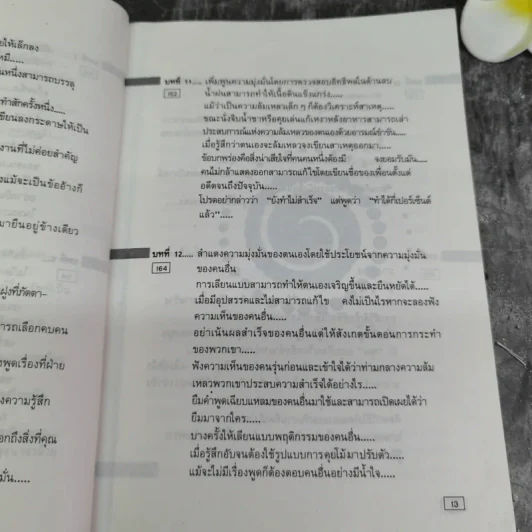 ยให้เล็กลง
หมี.....
นหนึ่งสามารถบรรลุ
ทำสักครั้งหนึ่ง.....
เขียนลงกระดาษให้เป็น
งานที่ไม่ค่อยสำคัญ
แม้จะเป็นข้ออ้างก็
มายืนอยู่ข้างเดียว
ฝูงที่ภัตตา-
ารถเลือกคบคน
งพูดเรื่องที่ฝ่าย
งความรู้สึก
อกถึงสิ่งที่คุณ
มั่น.....
บทที่ 11..... เพิ่มพูนความมุ่งมั่นโดยการตรวจสอบอิทธิพลในด้านลบ
152
น้ำฝนสามารถทำให้เนื้อดินแข็งแกร่ง.....
แม้ว่าเป็นความล้มเหลวเล็ก ๆ ก็ต้องวิเคราะห์สาเหตุ.....
ขณะนั่งจิบน้ำชาหรือคุยเล่นแก้เหงาหลังอาหารสามารถเล่า
ประสบการณ์แห่งความล้มเหลวของตนเองด้วยอารมณ์ขำขัน.....
เมื่อรู้สึกว่าตนเองจะล้มเหลวจงเขียนสาเหตุออกมา.....
ข้อบกพร่องคือสิ่งน่าเสียใจที่คนคนหนึ่งต้องมี จงยอมรับมัน.....
คนไม่กล้าแสดงออกสามารถแก้ไขโดยเขียนชื่อของเพื่อนตั้งแต่
อดีตจนถึงปัจจุบัน.....
โปรดอย่ากล่าวว่า "ยังทำไม่สำเร็จ" แต่พูดว่า "ทำได้กี่เปอร์เซ็นต์
แล้ว".....
บทที่ 12..... สำแดงความมุ่งมั่นของตนเองโดยใช้ประโยชน์จากความมุ่งมั่น
164
ของคนอื่น
การเลียนแบบสามารถทำให้ตนเองเจริญขึ้นและยืนหยัดได้.....
เมื่อมีอุปสรรคและไม่สามารถแก้ไข คงไม่เป็นไรหากจะลองฟัง
ความเห็นของคนอื่น.....
อย่าเน้นผลสำเร็จของคนอื่นแต่ให้สังเกตขั้นตอนการกระทำ
ของพวกเขา.....
ฟังความเห็นของคนรุ่นก่อนและเข้าใจได้ว่าท่ามกลางความล้ม
เหลวพวกเขาประสบความสำเร็จได้อย่างไร.....
ยืมคำพูดเฉียบแหลมของคนอื่นมาใช้และสามารถเปิดเผยได้ว่า
ยืมมาจากใคร.....
บางครั้งให้เลียนแบบพฤติกรรมของคนอื่น.....
เมื่อรู้สึกอับจนต้องใช้รูปแบบการคุยโม้มาปรับตัว.....
แม้จะไม่มีเรื่องพูดก็ต้องตอบคนอื่นอย่างมีน้ำใจ.....
13